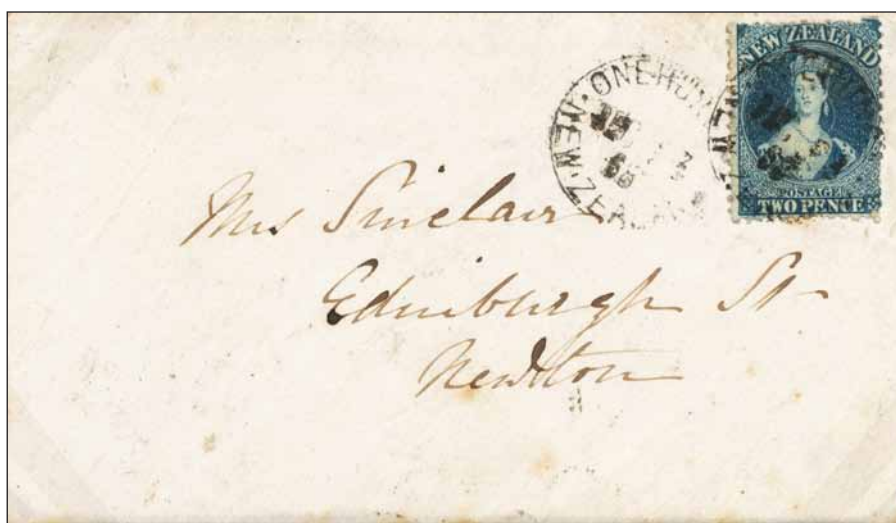 NEW ZEALAND
POSTAGE
TWO PENCE
NEW·ZEALAND
Mrs Sinclair
Edinburgh St
Newton